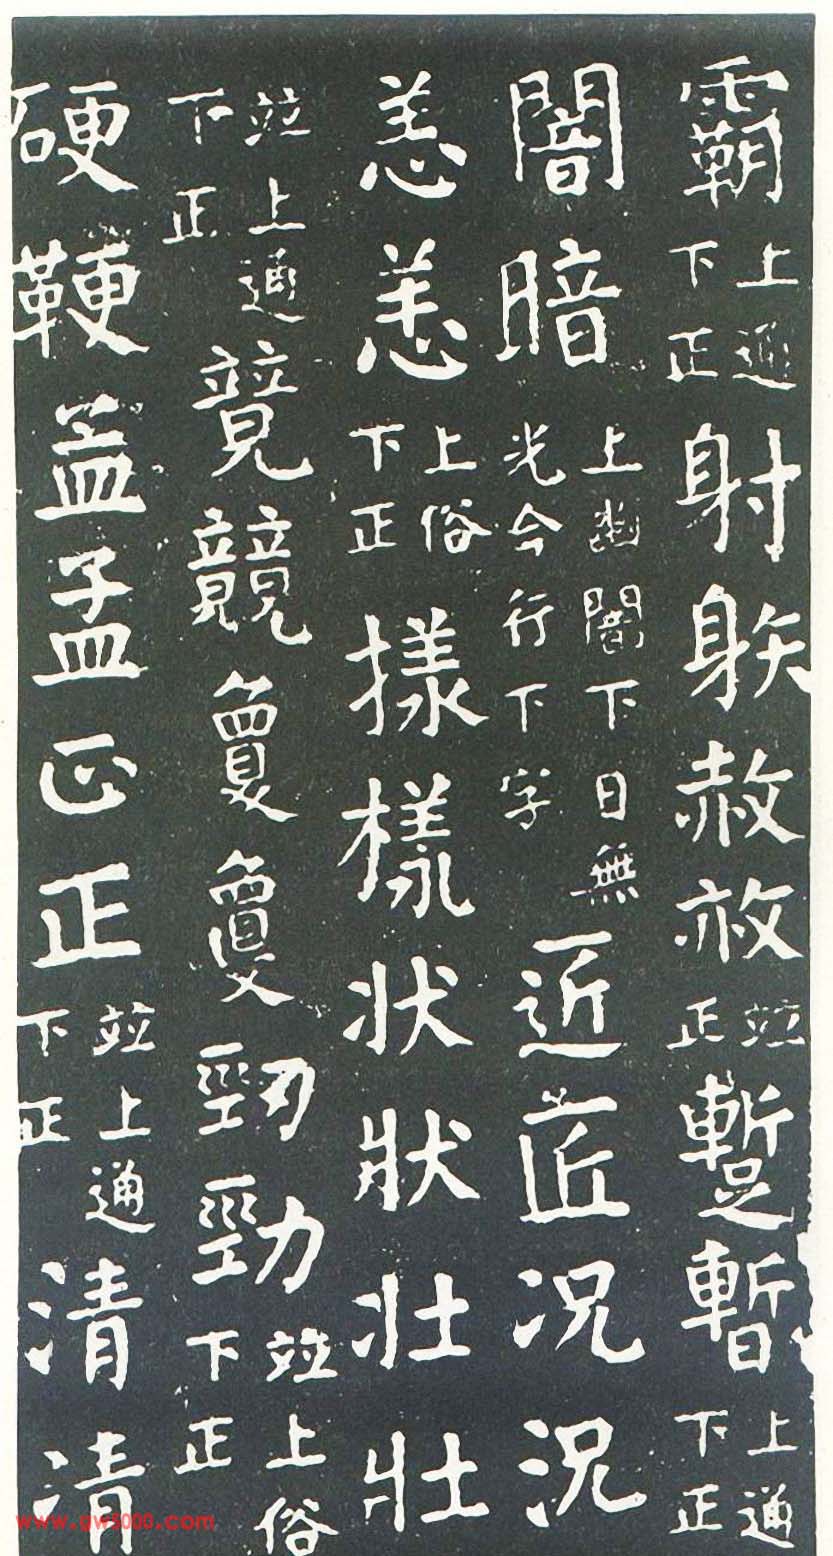 霸上通下正射䠶赦赦並正蹔暫上通下正
闇暗上幽闇下日無光今行下字近匠况況
恙恙上俗下正㨾樣状狀壮壯
並上通下正竞競敻敻勁勁並上俗下正
硬鞕孟孟正正並上通下正清清
www.gw5000.com